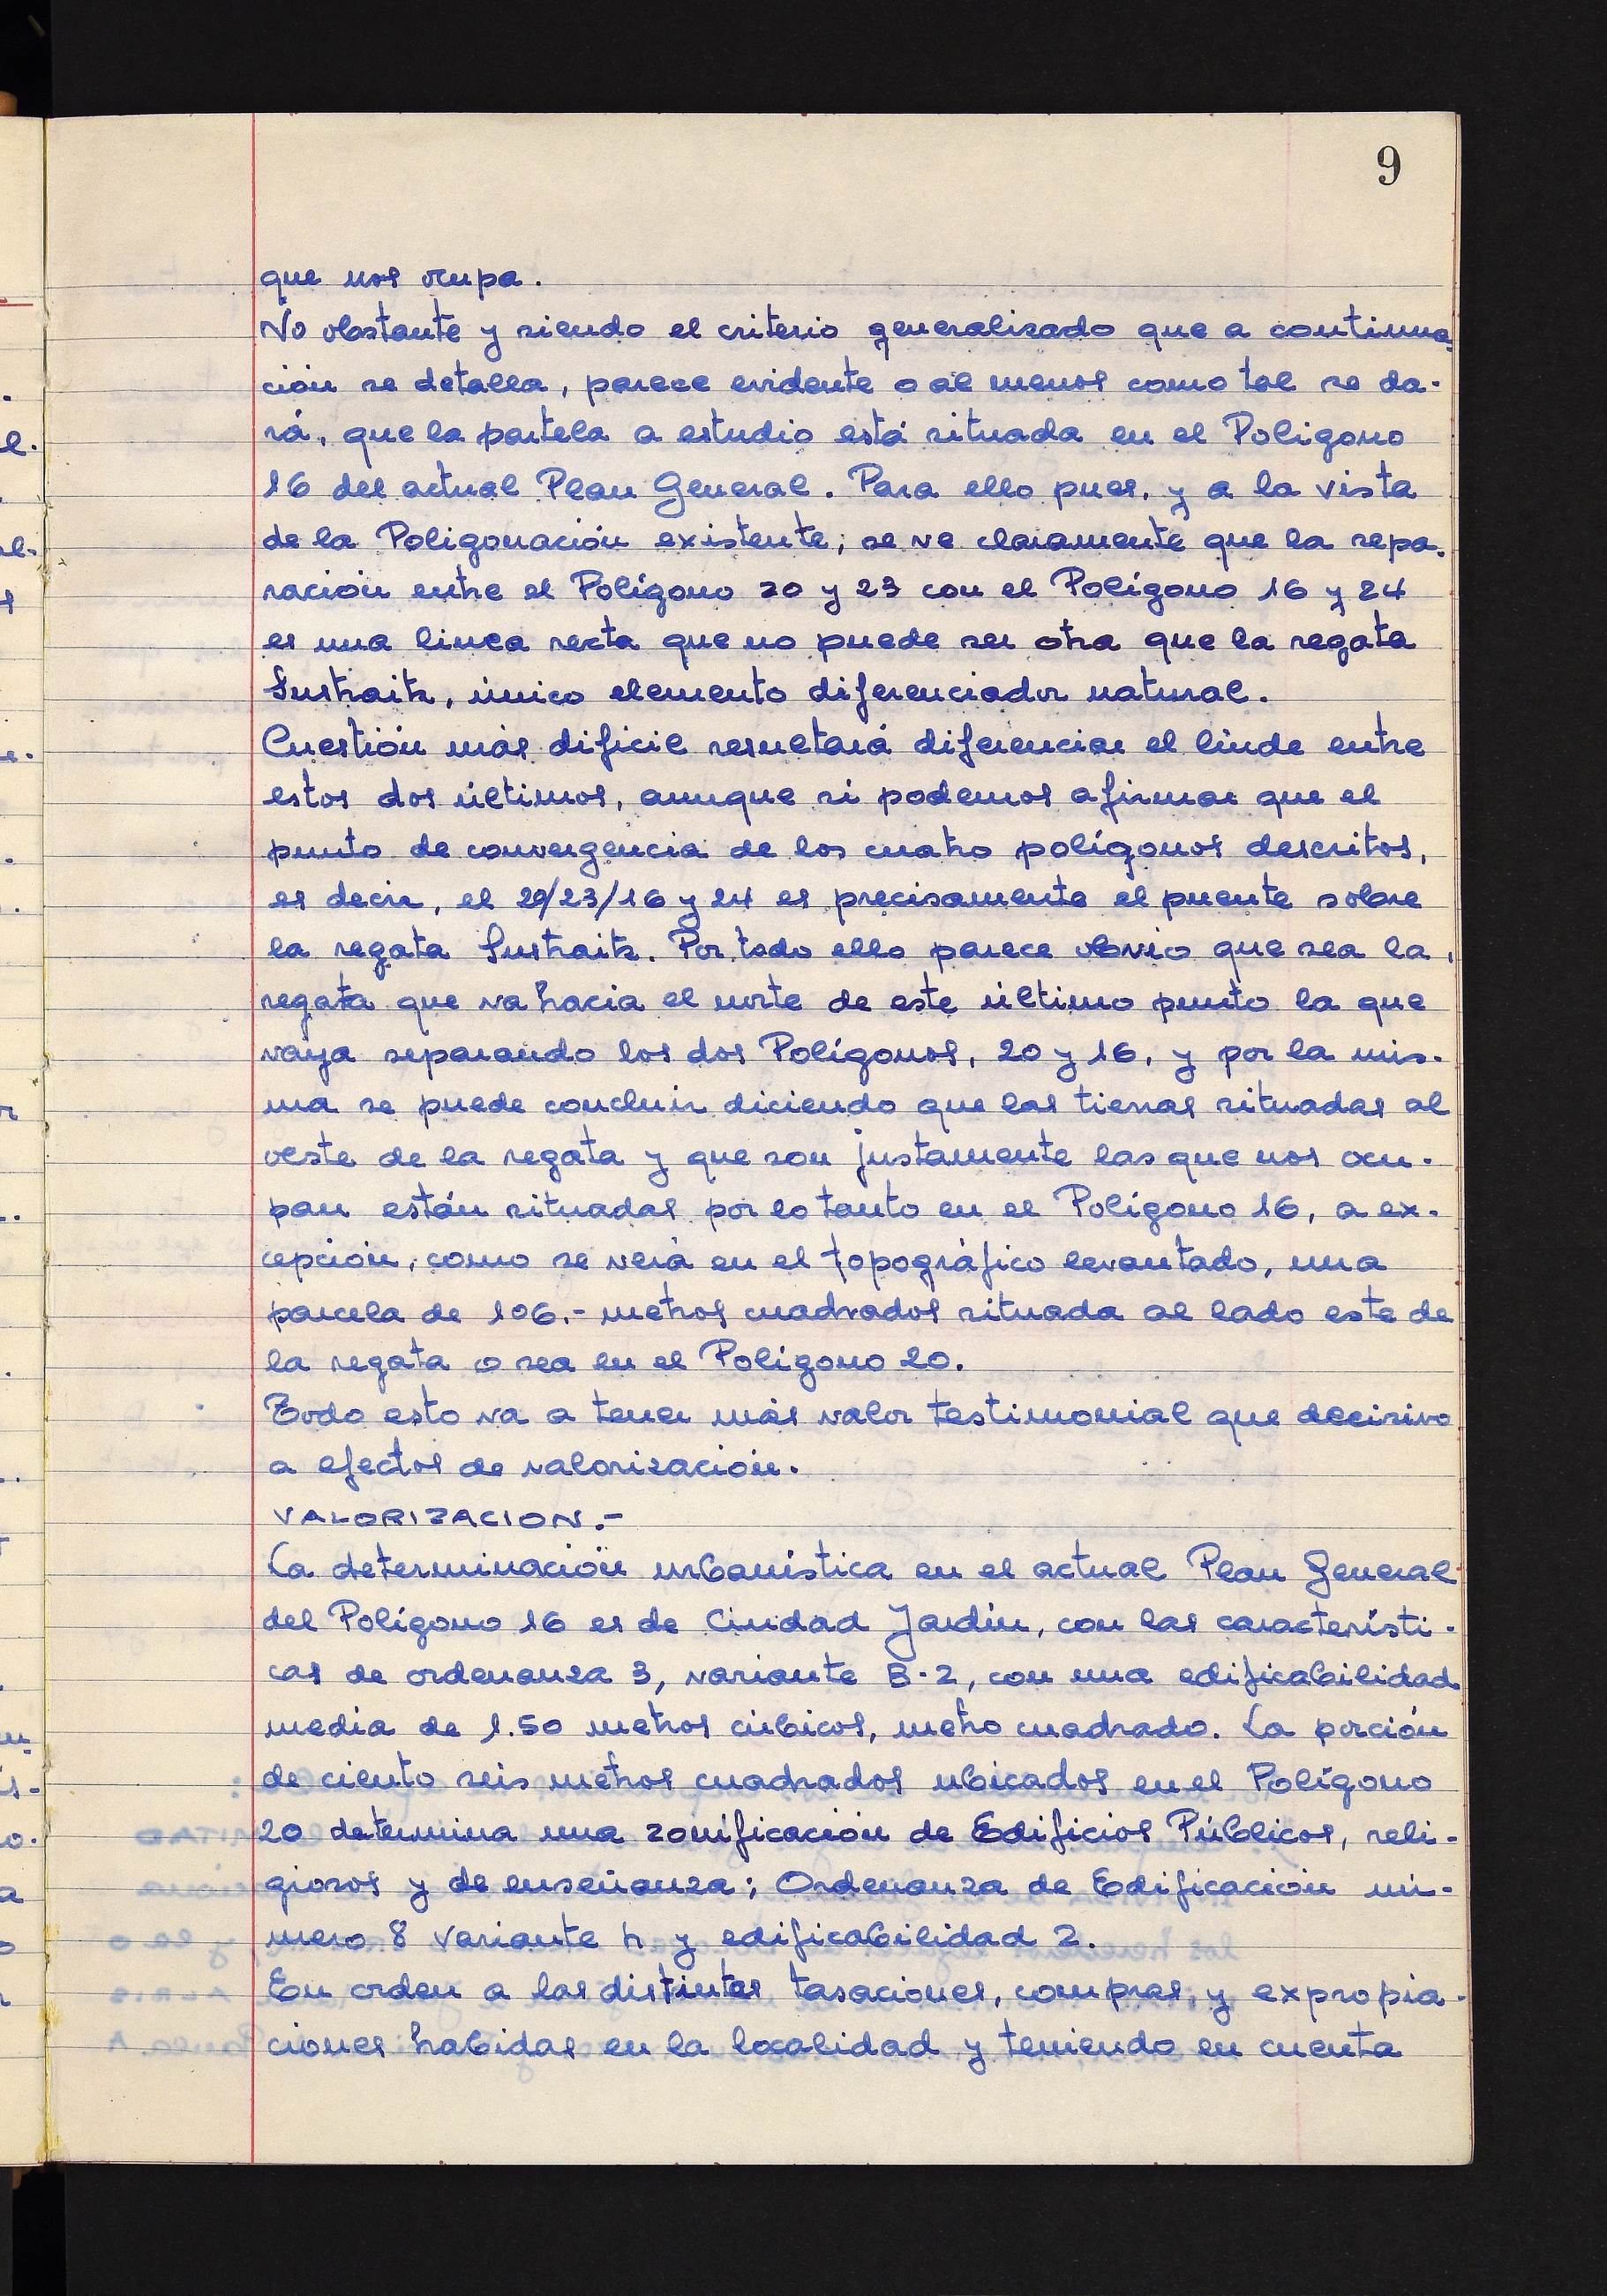 9
que nos ocupa.
No obstante y siendo el criterio generalizado que a continua-
ción se detalla, parece evidente o al menos como tal se da-
rá, que la partela a estudio está situada en el Poligono
16 del actual Plan General. Para ello pues, y a la vista
de la Poligonación existente, se ve claramente que la sepa-
ración entre el Polígono 20 y 23 con el Polígono 16 y 24
es una linea recta que no puede ser otra que la regata
Sustraitz, único elemento diferenciador natural.
Cuestión más dificil resultará diferenciar el linde entre
estos dos últimos, aunque si podemos afirmar que el
punto de convergencia de los cuatro polígonos descritos,
es decir, el 20/23/16 y 24 es precisamente el puente sobre
la regata Sustraitz. Por todo ello parece obvio que sea la
regata que va hacia el norte de este último punto la que
vaya separando los dos Polígonos, 20 y 16, y por la mis-
ma se puede concluir diciendo que las tierras situadas al
oeste de la regata y que son justamente las que nos ocu-
pan están situadas por lo tanto en el Polígono 16, a ex-
cepción, como se verá en el topográfico levantado, una
parcela de 106.- metros cuadrados situada al lado este de
la regata o sea en el Polígono 20.
Todo esto va a tener más valor testimonial que decisivo
a efectos de valorización.
VALORIZACION.-
La determinación urbanística en el actual Plan General
del Polígono 16 es de Ciudad Jardín, con las característi-
cas de ordenanza 3, variante B-2, con una edificabilidad
media de 1.50 metros cúbicos, metro cuadrado. La porción
de ciento seis metros cuadrados ubicados en el Polígono
20 determina una zonificación de Edificios Públicos, reli-
giosos y de enseñanza; Ordenanza de Edificación nú-
mero 8 variante h y edificabilidad 2.
En orden a las distintas tasaciones, compras, y expropia-
ciones habidas en la localidad y teniendo en cuenta